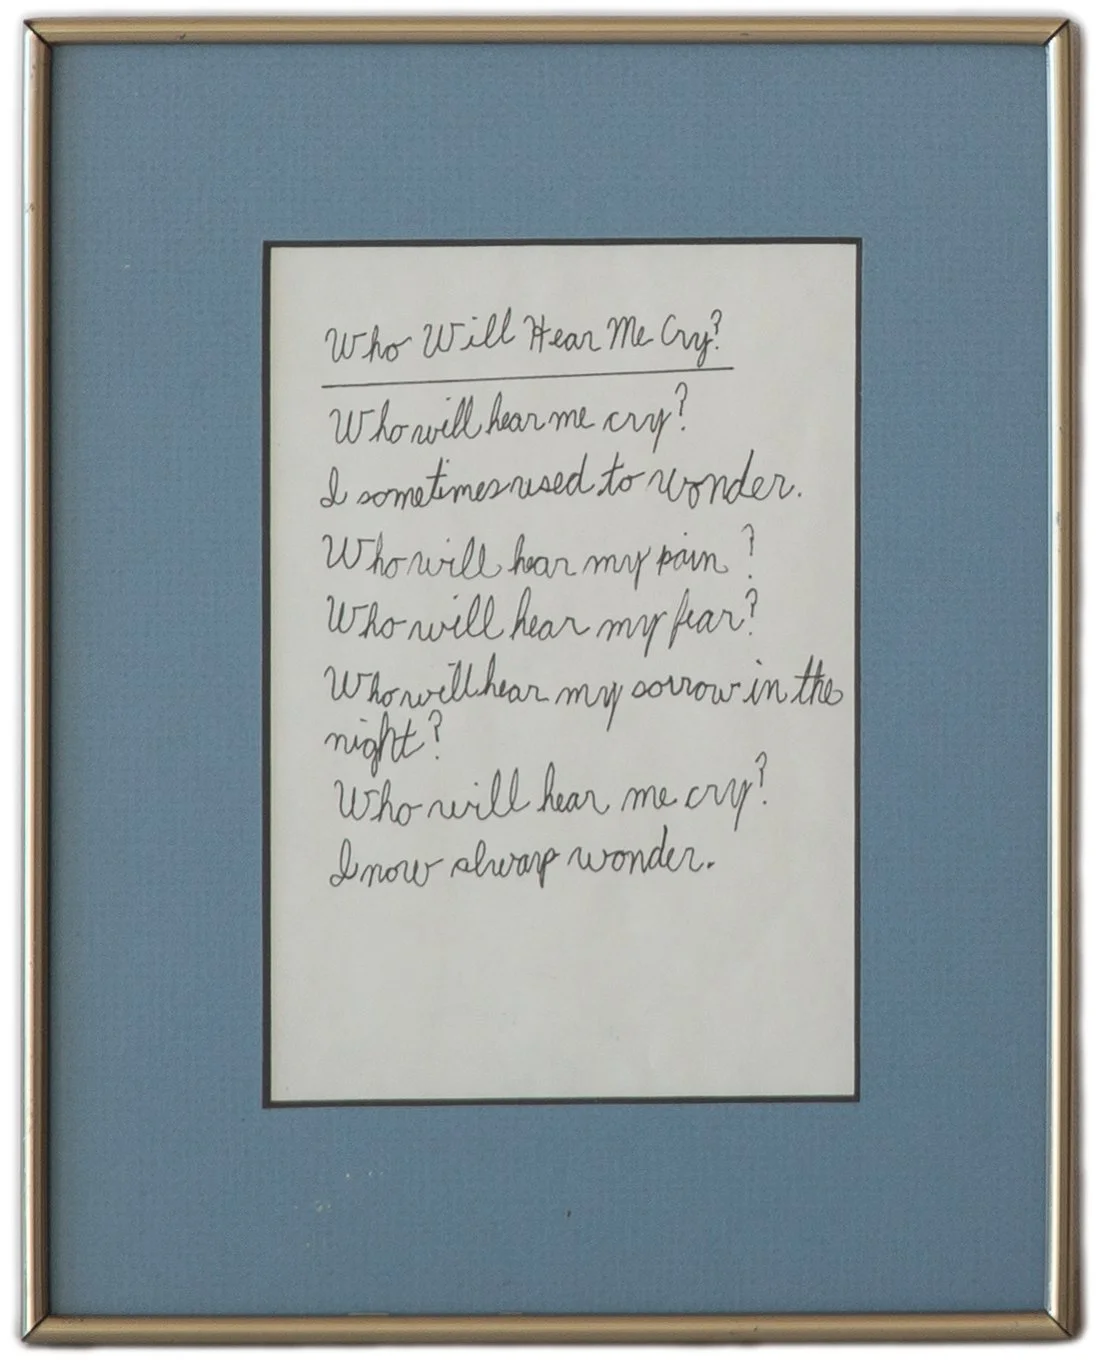 Who Will Hear Me Cry?
Who will hear me cry?
I sometimes used to wonder.
Who will hear my pain?
Who will hear my fear?
Who will hear my sorrow in the
night?
Who will hear me cry?
I now always wonder.